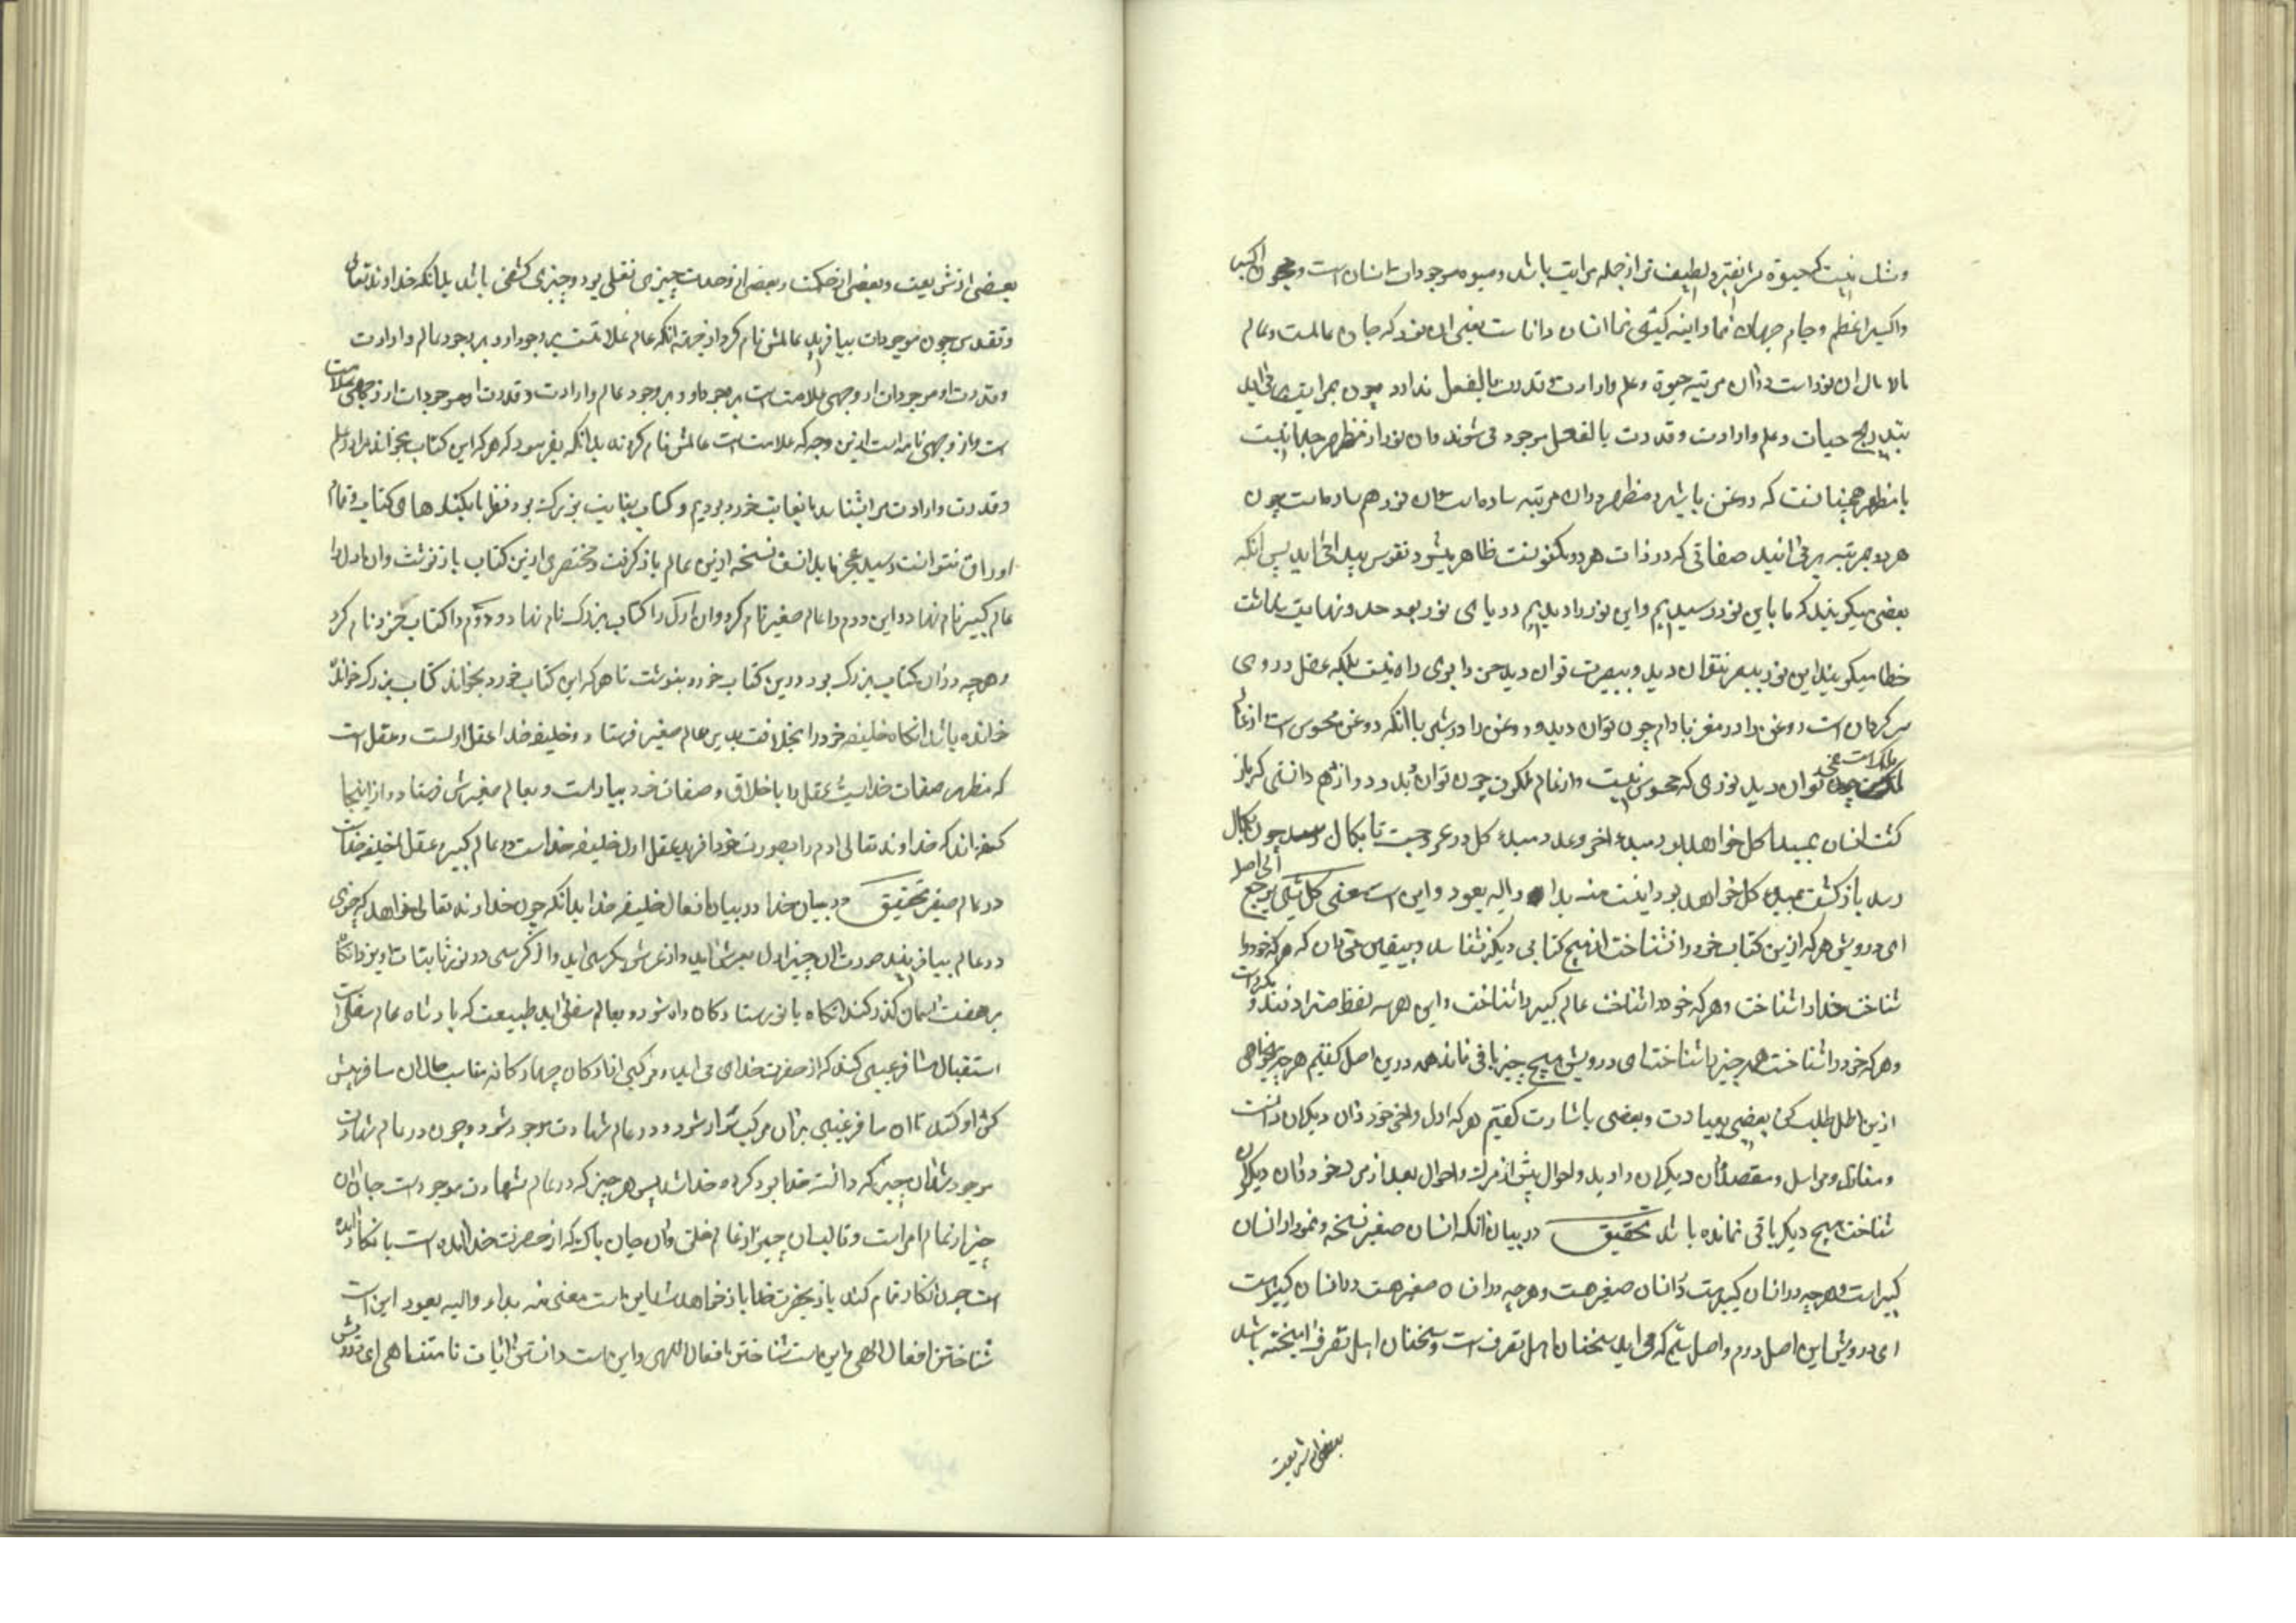 و شک نیست که میوه شریفتر و لطیف تر از جمله مراتب باشد و میوه موجودات انسان است و معجون اکبر
و اکسیر اعظم و جام جهان نما و آینه گیتی نما انسان داناست یعنی این نور که جان عالمست و عالم
مالامال این نور است در آن مرتبه حیوة و علم و ارادت و قدرت بالفعل ندارد چون بمراتب برمی آید
بتدریج حیات و علم و ارادت و قدرت بالفعل موجود می شوند و آن نور از مظهر جدا نیست
با مظهر همچنانست که روغن با شیر و مظهر در آن مرتبه ساده است آن نور هم ساده است چون
هر دو بمرتبه برمی آیند صفاتی که در ذات هر دو مکنونست ظاهر میشود و نقوش پیدا می آید پس آنکه
بعضی میگویند که ما باین نور رسیدیم و این نور را دیدیم دریای نور بیحد و نهایت بداشت
خطا میگویند این نور ببصر نتوان دید و ببصیرت توان دید حس را بوی راه نیست بلکه عقل در وی
سرگردان است روغن را در مغز بادام چون توان دید و روغن را در شیر با آنکه روغن محسوس است از عالم
ملک است چون توان دید نوری که محسوس نیست و از عالم ملکوت چون توان دید و دوازدهم دانستی که باز
گشت انسان بمبدا کل خواهد بود مبدا آخر وعد و مبدا کل در عروجست تا بکمال رسید چون بکمال
رسد بازگشت بمبدا کل خواهد بود اینست منه بدا و الیه یعود و این است معنی کل شیء یرجع الی اصله
ای درویش هر که ازین کتاب خود را نشناخت از هیچ کتابی دیگر نشناسد و بیقین میدان که هر که خود را
شناخت خدا را شناخت و هر که خود را شناخت عالم کبیر را شناخت و این هر سه لفظ مترادفند و یکی است
و هر که خود را شناخت همه چیز را شناخت ای درویش هیچ چیز باقی نماند همه درین اصل گفتیم هر چه میخواهی
ازین اصل طلب کن بعضی بعبارت و بعضی باشارت گفتیم هر که اول و آخر خود و آن دیگران دانست
و منازل و مراحل و مقصد آن دیگران را دید و احوال پیش از مرگ و احوال بعد از مرگ خود و آن دیگران
شناخت هیچ دیگر باقی نمانده باشد تحقیق در بیان آنکه انسان صغیر نسخه و نمودار انسان
کبیر است و هر چه در انسان کبیر هست در انسان صغیر هست و هر چه در انسان صغیر هست در انسان کبیر است
ای درویش این اصل دوم و اصل سیم که می آید سخنان اهل تصرف است و سخنان اهل تصرف آمیخته باشد
بعضی از شریعت
بعضی از شریعت و بعضی از حکمت و بعضی از وحدت چیزی نقلی بود و چیزی کشفی باشد بدانکه خداوند تعالی
و تقدس چون موجودات بیافرید عالمش نام کرد از جهت آنکه عالم علامتست بر وجود او و بر وجود عالم و ارادت
و قدرت او موجودات از وجهی علامت است بر وجود او و بر وجود عالم و ارادت و قدرت او موجودات از وجهی علامت
است و از وجهی نامه است ازین وجه که علامت است عالمش نام کردند بدانکه بفرمود که هر که این کتاب بخواند مرا و علم
و قدرت و ارادت مرا بشناسد ما بغایت خرد بودیم و کتاب بغایت بزرگ بود نظر ما بکنارهای کتاب و تمام
اوراق نتوانست رسید عجز ما بدانست نسخه ازین عالم باز گرفت و مختصری ازین کتاب باز نوشت و آن اول را
عالم کبیر نام نهاد و این دوم را عالم صغیر نام کرد و آن اول را کتاب بزرگ نام نهاد و دوم را کتاب خرد نام کرد
و هر چه در آن کتاب بزرگ بود درین کتاب خرد بنوشت تا هر که این کتاب خرد بخواند کتاب بزرگ خوانده
خوانده باشد آنگاه خلیفه خود را بخلافت بدین عالم صغیر فرستاد و خلیفه خدا عقل اولست و عقل است
که مظهر صفات خداست عقل را باخلاق و صفات خود بیاراست و بعالم صغیرش فرستاد و از اینجا
گفته اند که خداوند تعالی آدم را بصورت خود آفرید عقل اول خلیفه خداست در عالم کبیر و عقل خلیفه خداست
در عالم صغیر تحقیق در بیان خدا و در بیان افعال خلیفه خدا بدانکه چون خداوند تعالی خواهد که چیزی
در عالم بیافریند صورت آن چیز اول بعرش آید و از عرش بکرسی آید و از کرسی در نور ثابتات آویزد آنگاه
بر هفت آسمان گذر کند آنگاه با نور ستارگان راه شود و بعالم سفلی آید طبیعت که پادشاه عالم سفلی است
استقبال مسافر غیبی کند که از حضرت خدای می آید و مرکبی از ارکان چهارگانه مناسب حال آن مسافر پیش
کش او کند تا آن مسافر غیبی بر آن مرکب سوار شود و در عالم شهادت موجود شود و چون در عالم شهادت
موجود شد آن چیز که دانسته خدا بود کرده خدا شد پس هر چیز که در عالم شهادت موجود است جان آن
چیز از عالم امر است و قالب آن چیز از عالم خلق و آن جان پاک که از حضرت خدا آمده است بآن کار آمده
است چون آنکار تمام کند باز بحضرت خدا باز خواهد شد این است معنی منه بداء و الیه یعود این است
شناختن افعال الهی و این است شناختن افعال اللهی و این است دانستن آیات نامتناهی ای درویش